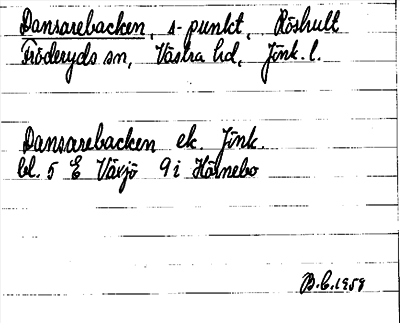 Dansarebacken, s-punkt, Röshult
Fröderyds sn, Västra hd, Jönk. l.
Dansarebacken ek. Jönk.
bl. 5 E Växjö 9 i Hörnebo
B.C. 1959